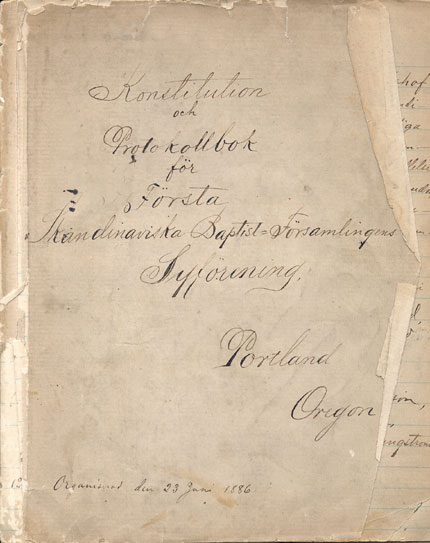 Konstitution
och
Protokollbok
för
Första
Skandinaviska Baptist=Församlingens
Syförening.
Portland
Oregon
Organiserad den 23 Juni 1886